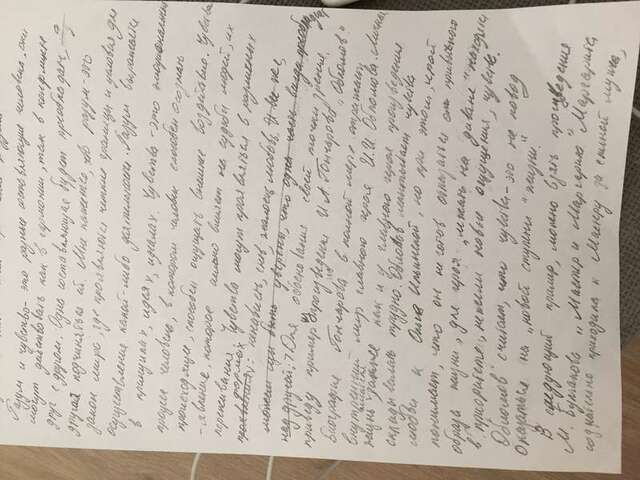 Разум и чувство- это разные составляющие человека. они
могут действовать как в гармонии, так и конфликте
друг с другом. Одна составляющая будет преобладать, а
другая подчиняться ей. Мне кажется, что разум-это
закон мира, где проявляются четкие границы и условия для
осуществления какой-либо деятельности. Разум выражается
в принципах, идеях, идеалах. Чувства -это эмоциональный
процесс человека, в котором человек способен осознано
происходящее, способен ощущать внешнее воздействие. Чувства
-явление, которое сильно влияет на судьбы людей, их
переживания. Чувства могут проявляться в различных
формах
проявлениях: ненависть, гнев, жалость, любовь. И все же,
можем мы быть уверены, что одна часть всегда преобладает
над другой? Для обоснования своей точки зрения,
приведу пример произведения И.А Гончарова „Обломов"
Биография Гончарова в полной мере отражает
внутренний мир главного героя И.И Обломова. Личная
жизнь писателя как и у главного героя произведения
складывалась трудно. Обломов испытывает чувства
любви к Ольге Ильинской, но при этом, герой
понимает, что он не готов отказаться от привычного
образа жизни, для героя „лежать на диване" находится
в приоритете, нежели новые ощущения, чувства.
Обломов считает, что чувства-это не повод
оказаться на „новой ступени" жизни."
В следующий пример, можно взять произведения
М. Булгакова „Мастер и Маргарита" Маргарита
сознательно приходила к Мастеру за спиной мужа,